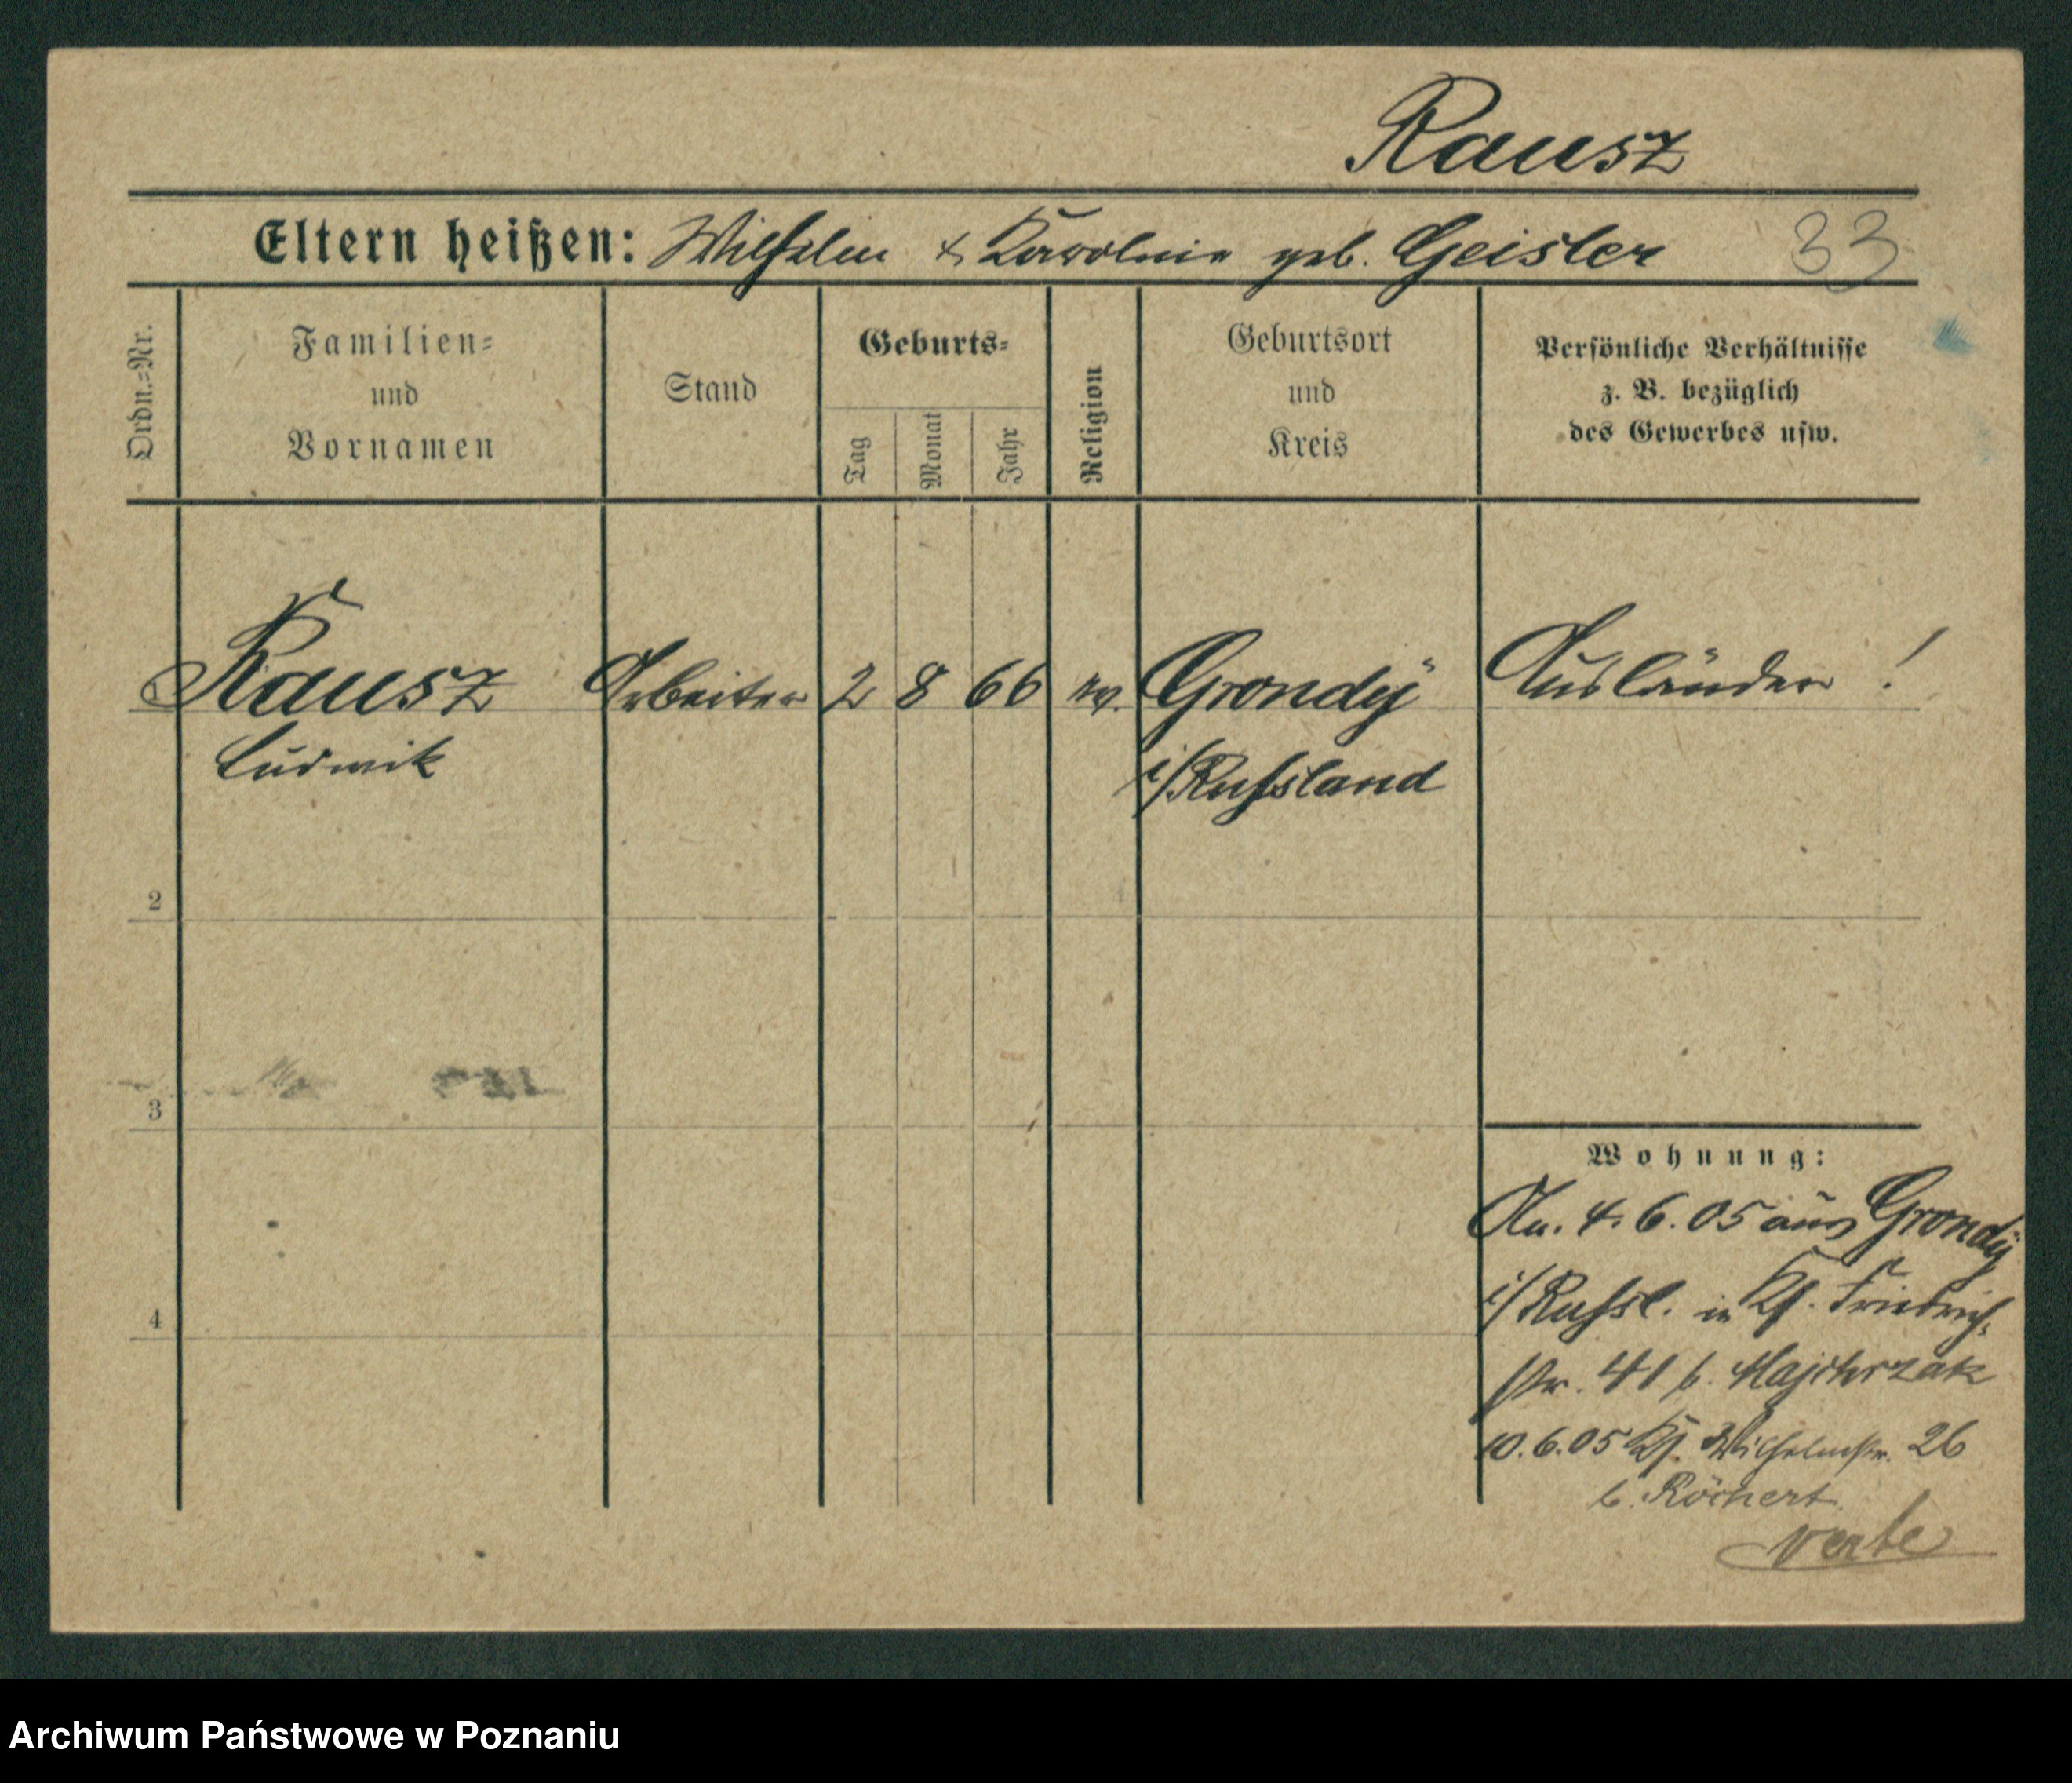 Rausz
Eltern heißen: Wilhelm & Karoline geb. Geisler 33
Ordn.=Nr.
Familien=
und
Vornamen
Stand
Geburts=
Tag
Monat
Jahr
Religion
Geburtsort
und
Kreis
Persönliche Verhältnisse
z. B. bezüglich
des Gewerbes usw.
Rausz Arbeiter 2 8 66 ev. Grondÿ Ausländer!
Ludwik i/Russland
2
3
4
Wohnung:
An. 4.6.05 aus Grondÿ
i/Russl. in Kf. Friedrich-
str. 41 b. Majchrzak
10.6.05 Kf. Wilhelmstr. 26
b. Röchert
verte
Archiwum Państwowe w Poznaniu